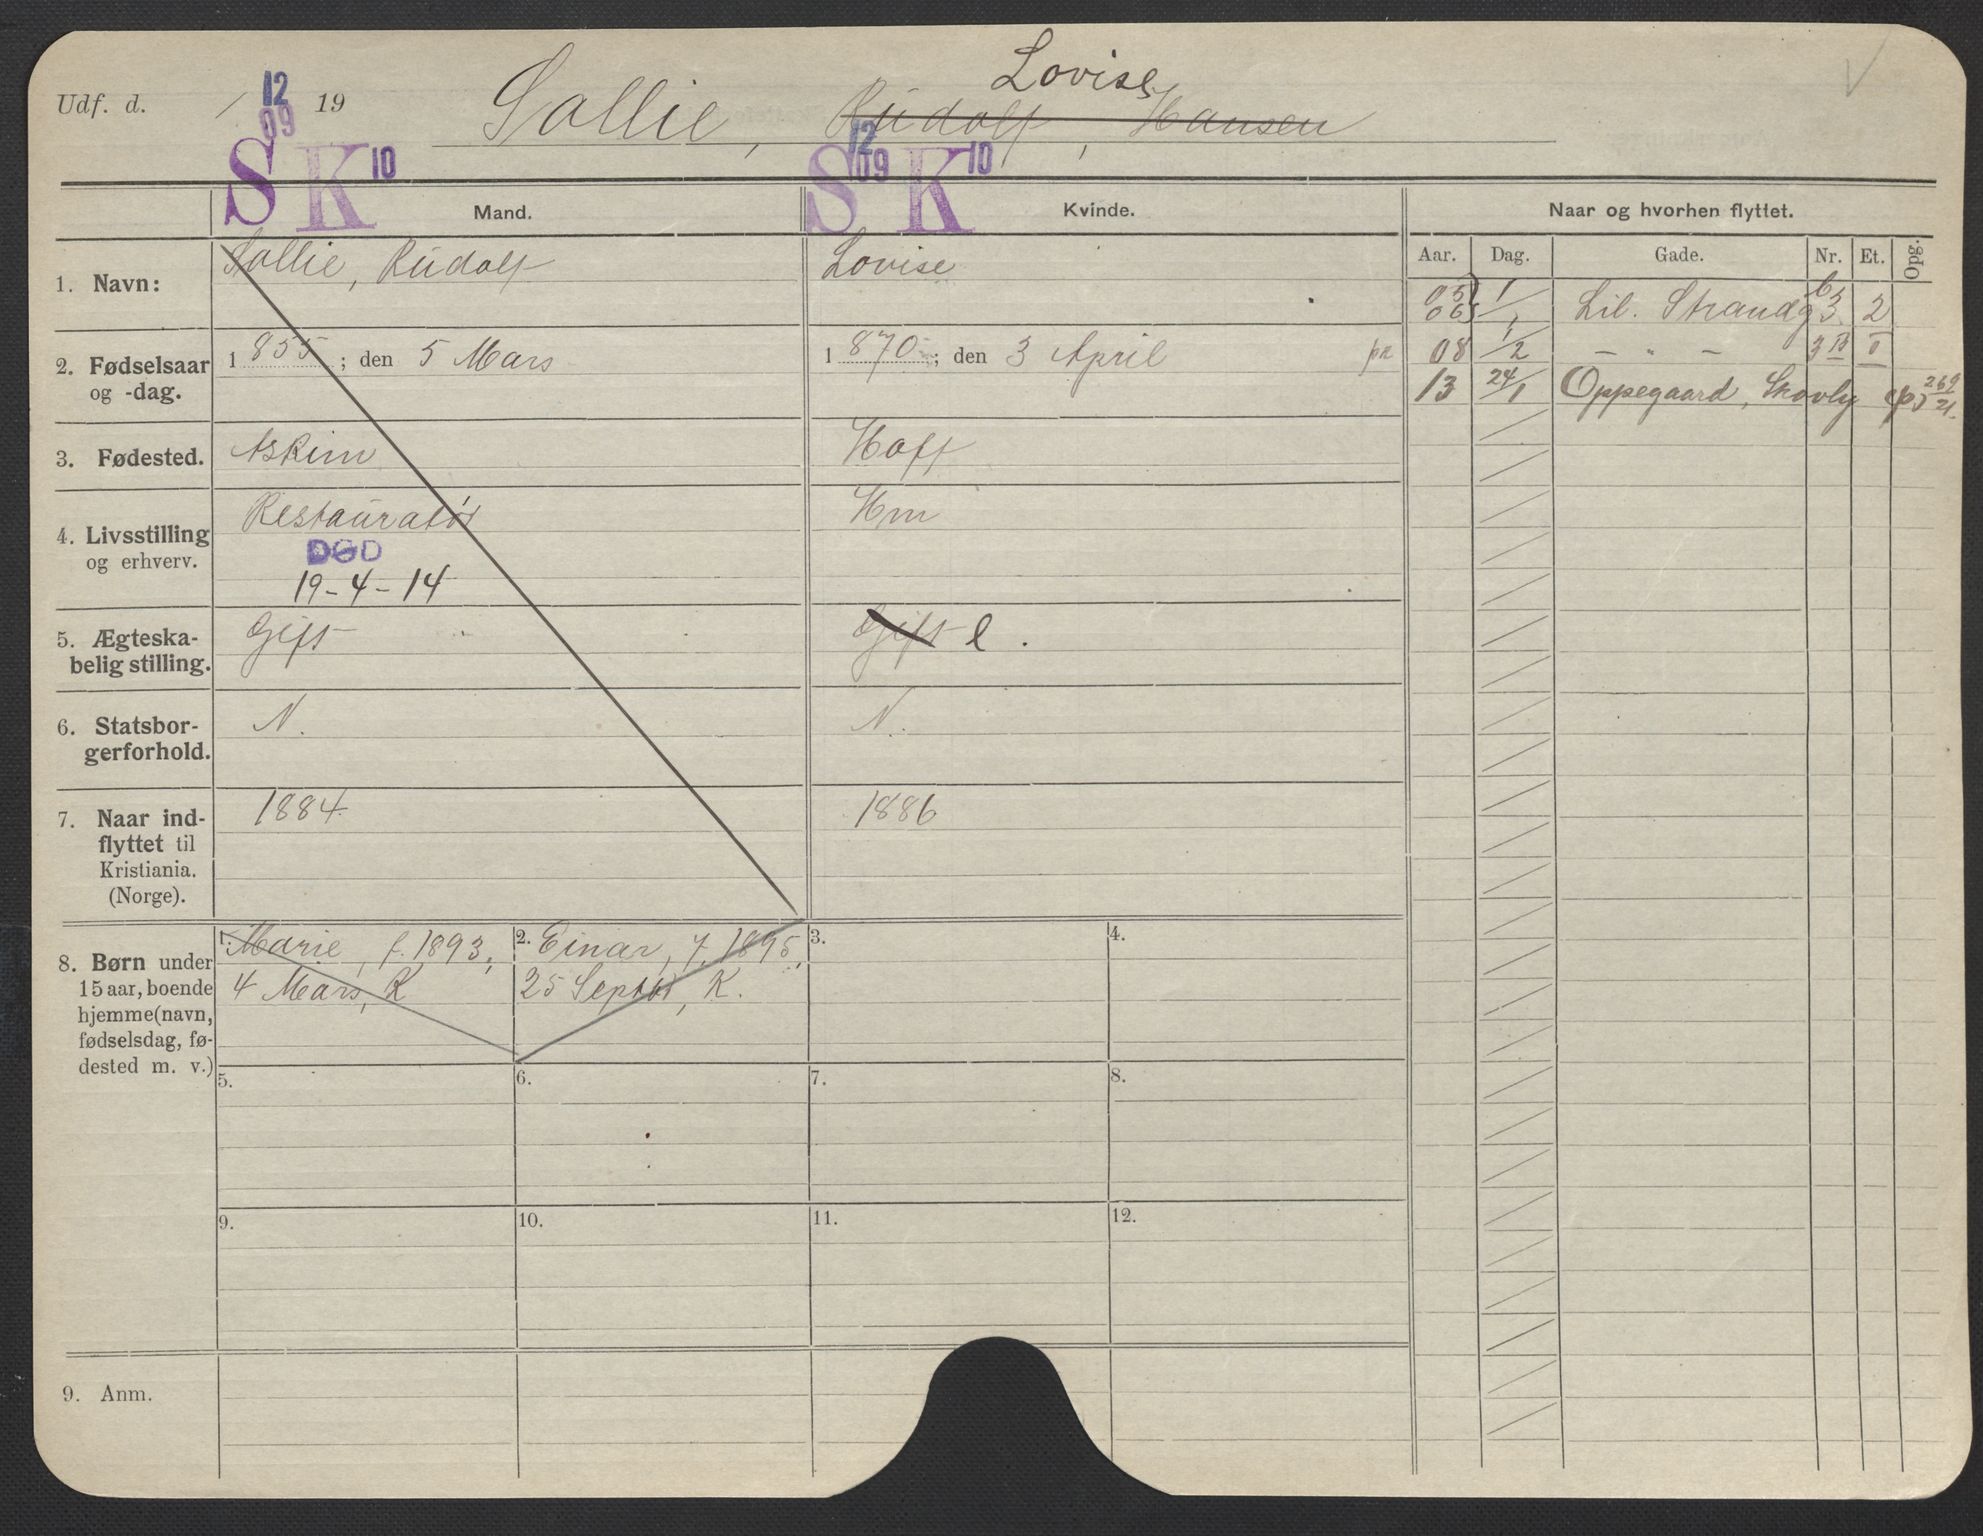 Lovise
Udf. d. 12 09 19 Sollie, Rudolf, Hansen
S K 10 12 09 S K 10
Mand. Kvinde. Naar og hvorhen flyttet.
Aar. Dag. Gade. Nr. Et. Opg.
1. Navn: Sollie, Rudolf Lovise
05 06 1/1 Lil. Strandg 3 2
2. Fødselsaar og -dag. 1 855; den 5 Mars 1 870; den 3 April
08 1/2 – " – 3 B I
13 24/1 Oppegaard, Skovly 269 21.
3. Fødested. Askim Hoff
4. Livsstilling og erhverv. Restauratør Hm
DØD
19-4-14
5. Ægteska-
belig stilling. Gift Gift e.
6. Statsbor-
gerforhold. N. N.
7. Naar ind-
flyttet til
Kristiania.
(Norge). 1884 1886
8. Børn under
15 aar, boende
hjemme (navn,
fødselsdag, fø-
dested m. v.)
1. Marie, f. 1893,
4 Mars, K
2. Einar, f. 1895,
25 Septbr, K.
3. 4.
5. 6. 7. 8.
9. 10. 11. 12.
9. Anm.